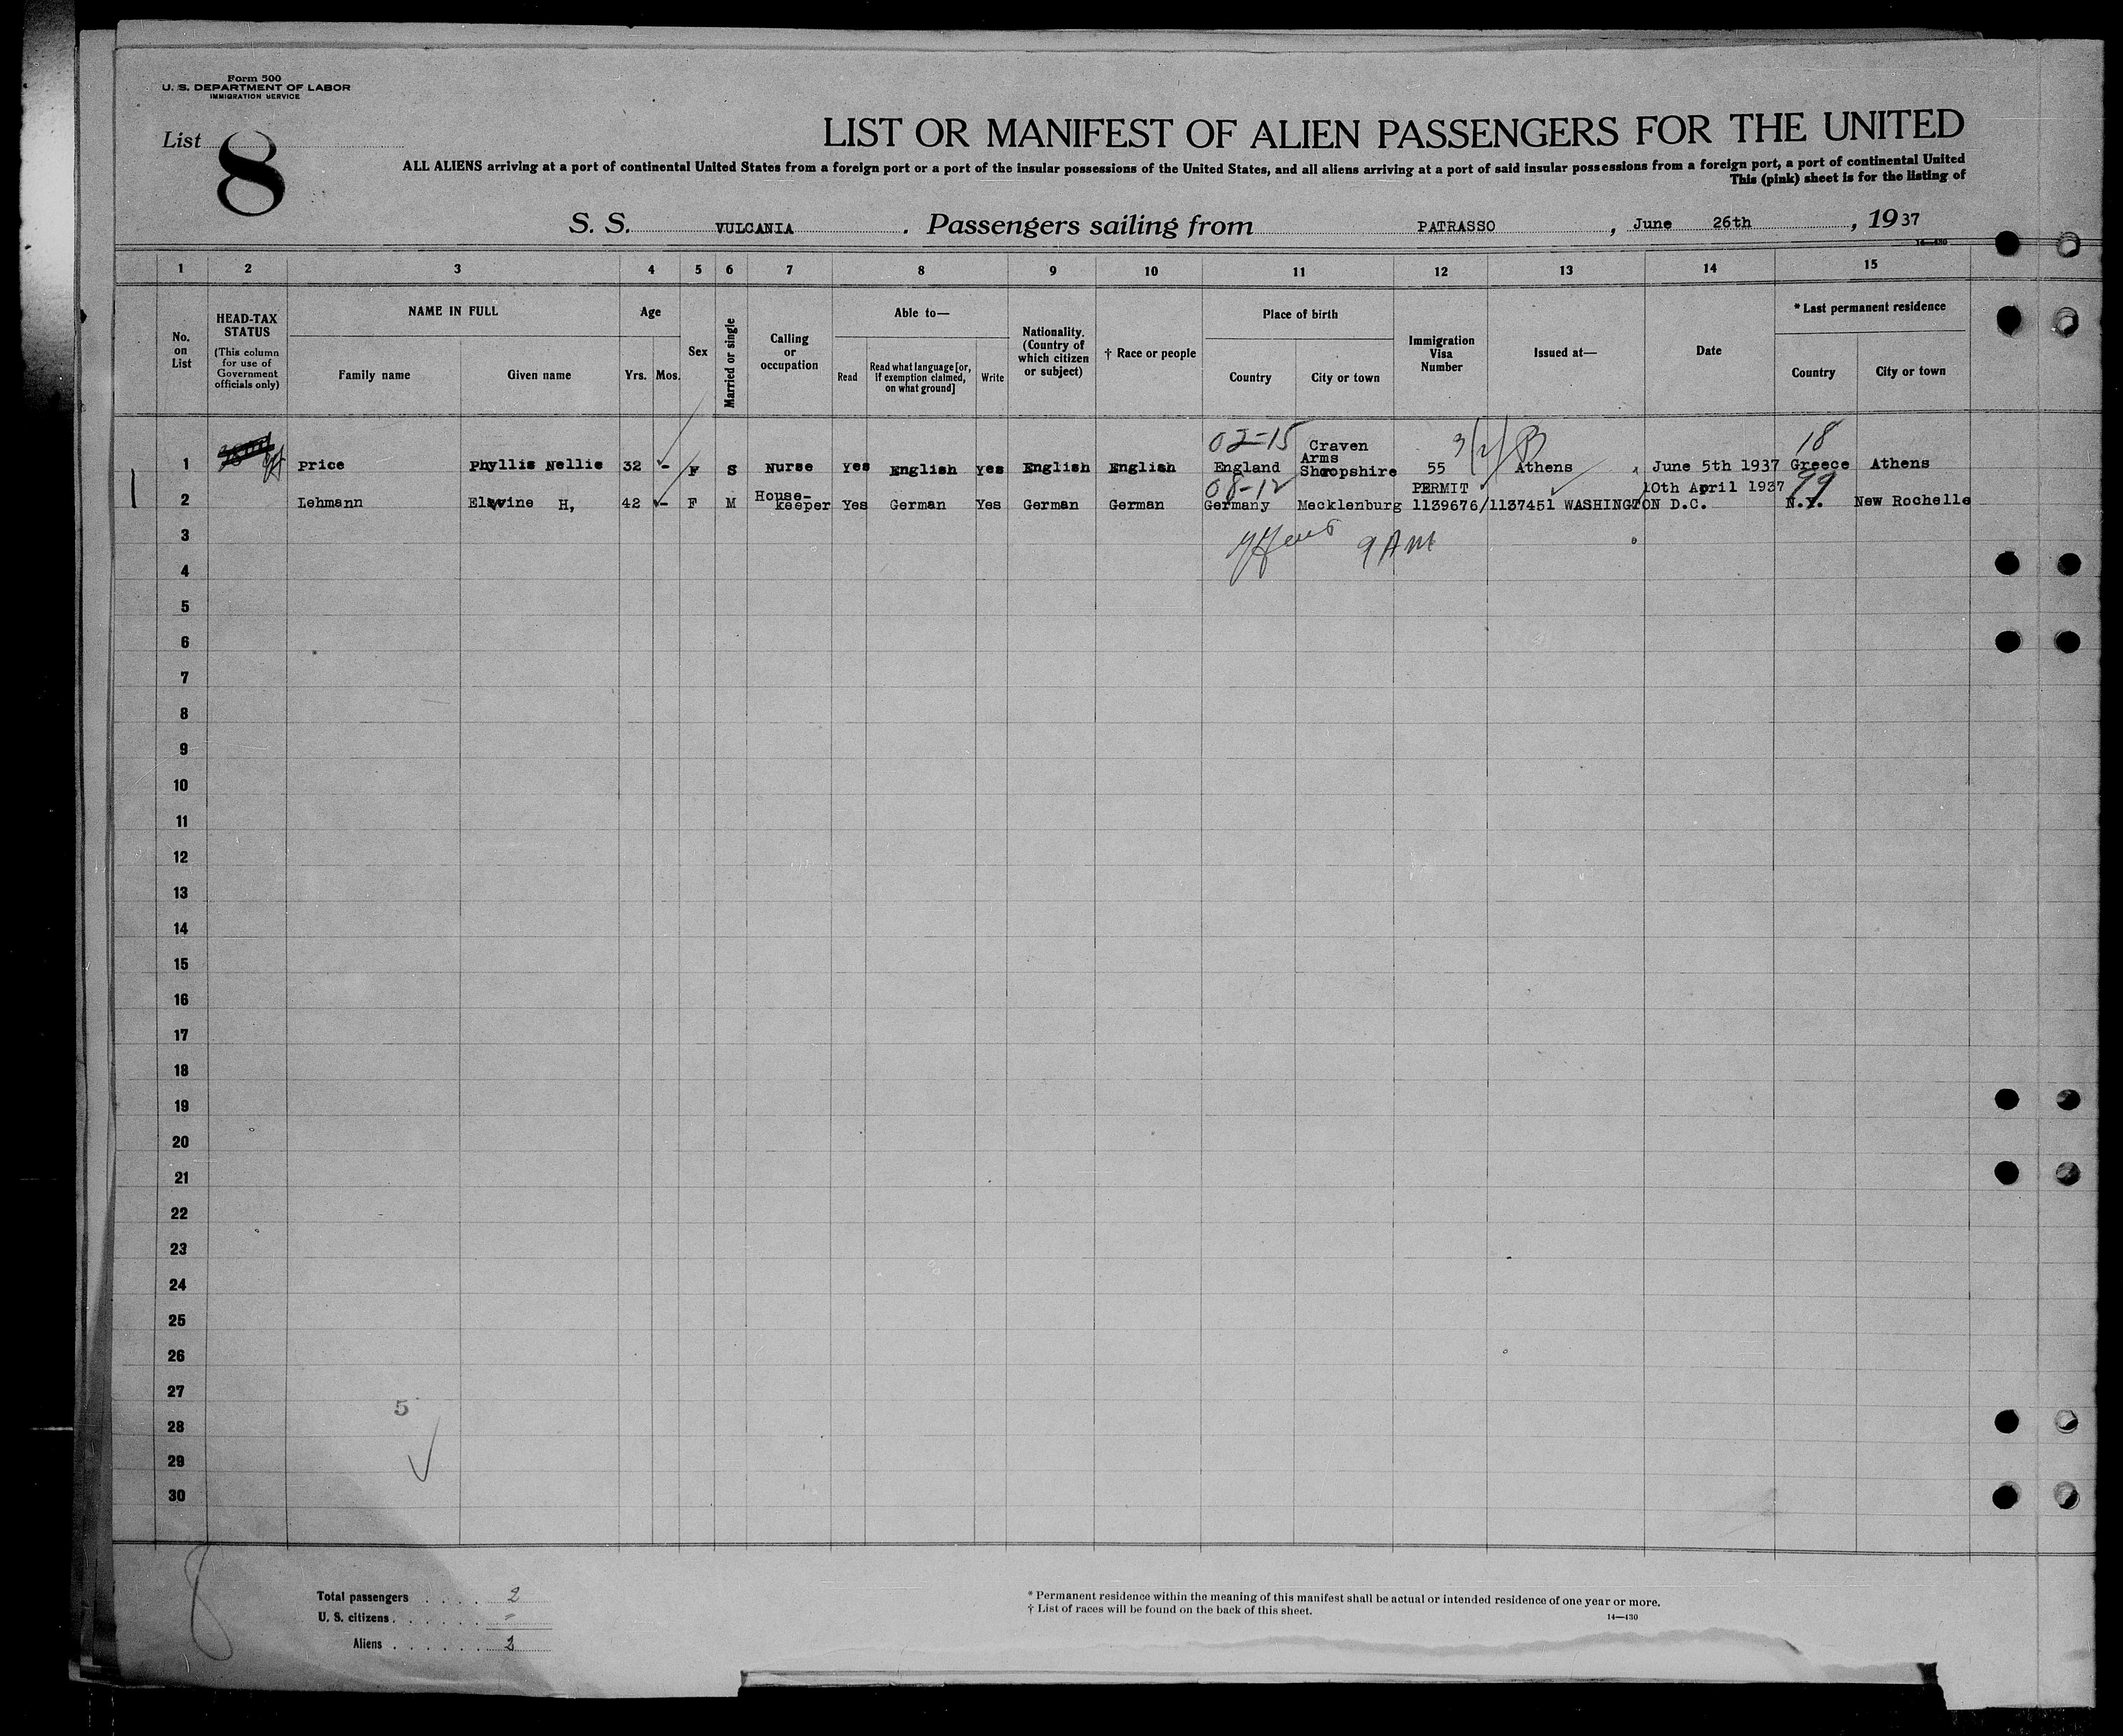 Form 500
U. S. DEPARTMENT OF LABOR
IMMIGRATION SERVICE
List 8
LIST OR MANIFEST OF ALIEN PASSENGERS FOR THE UNITED
ALL ALIENS arriving at a port of continental United States from a foreign port or a port of the insular possessions of the United States, and all aliens arriving at a port of said insular possessions from a foreign port, a port of continental United
This (pink) sheet is for the listing of
S. S. VULCANIA . Passengers sailing from PATRASSO , June 26th , 1937
14—430
1 2 3 4 5 6 7 8 9 10 11 12 13 14 15
No. on List
HEAD-TAX STATUS
(This column for use of Government officials only)
NAME IN FULL
Family name Given name
Age
Yrs. Mos.
Sex
Married or single
Calling or occupation
Able to—
Read
Read what language [or, if exemption claimed, on what ground]
Write
Nationality. (Country of which citizen or subject)
† Race or people
Place of birth
Country City or town
Immigration Visa Number
Issued at—
Date
* Last permanent residence
Country City or town
02-15 Craven 3(2) 18
Arms
1 Price Phyllis Nellie 32 - F S Nurse Yes English Yes English English England Shropshire 55 Athens June 5th 1937 Greece Athens
08-12 PERMIT 10th April 1937 99
House-
2 Lehmann Elwine H, 42 - F M keeper Yes German Yes German German Germany Mecklenburg 1139676/1137451 WASHINGTON D.C. N.Y. New Rochelle
3 9 AM
4
5
6
7
8
9
10
11
12
13
14
15
16
17
18
19
20
21
22
23
24
25
26
27
5
28
29
30
8
Total passengers . . . . 2
U. S. citizens . . . . . . "
Aliens . . . . . . 2
* Permanent residence within the meaning of this manifest shall be actual or intended residence of one year or more.
† List of races will be found on the back of this sheet.
14—430